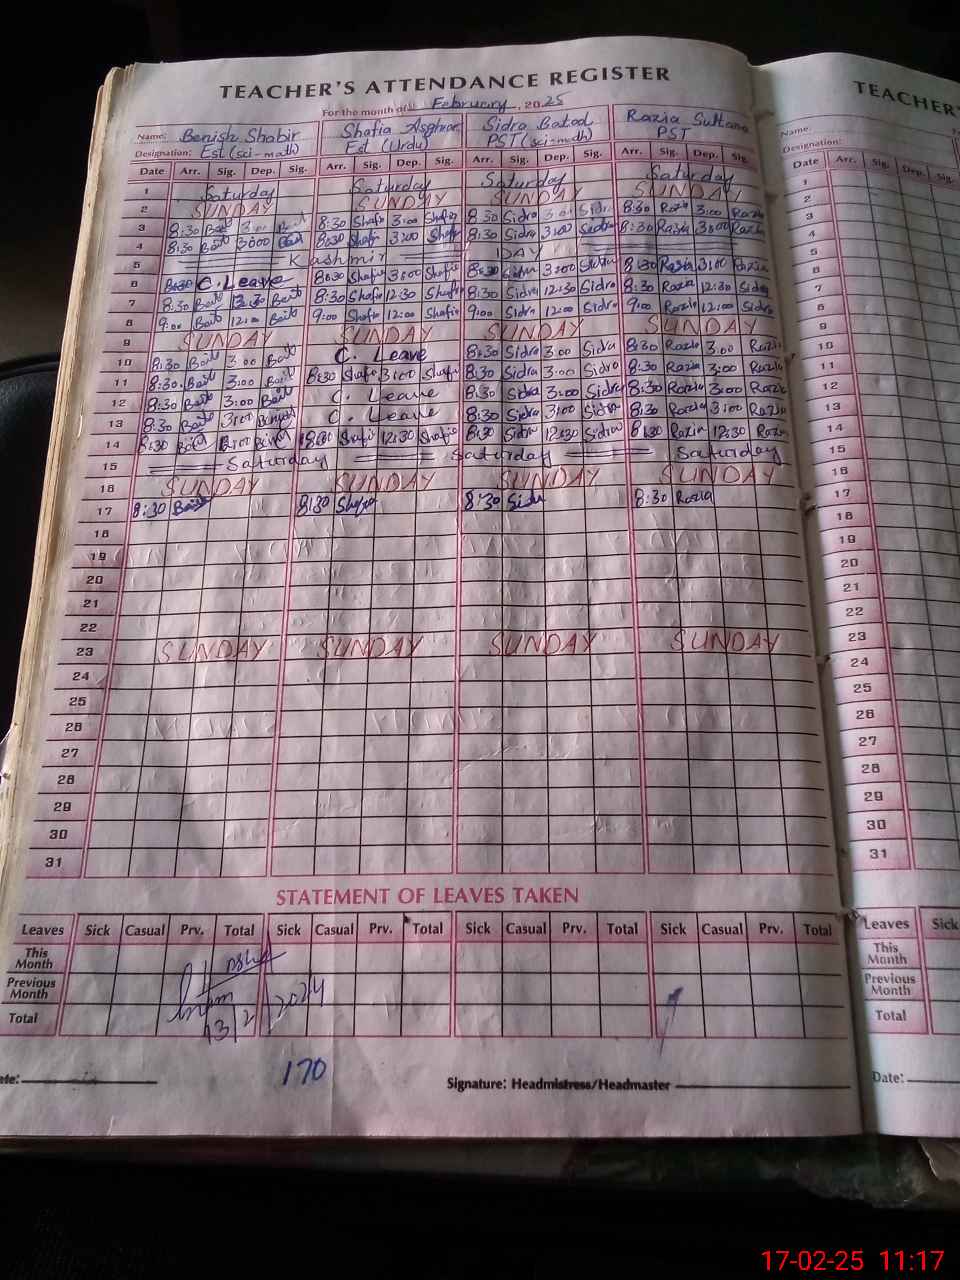 TEACHER'S ATTENDANCE REGISTER
TEACHER'S
For the month of February, 2025
Name: Benish Shabir Shafia Asghar Sidra Batool Razia Sultana
Name:
Designation: Est (sci-math) Est (Urdu) PST (sci-math) PST
Designation:
Date Arr. Sig. Dep. Sig. Arr. Sig. Dep. Sig. Arr. Sig. Dep. Sig. Arr. Sig. Dep. Sig.
Date Arr. Sig. Dep. Sig.
1 Saturday Saturday Saturday Saturday
2 SUNDAY SUNDAY SUNDAY SUNDAY
3 8:30 3:00 8:30 Shafia 3:00 Shafia 8:30 Sidra 3:00 Sidra 8:30 Razia 3:00 Razia
4 8:30 3:00 8:30 Shafia 3:00 Shafia 8:30 Sidra 3:00 Sidra 8:30 Razia 3:00 Razia
5 Kashmir DAY
6 8:30 C. Leave 8:30 Shafia 3:00 Shafia 8:30 Sidra 3:00 Sidra 8:30 Razia 3:00 Razia
7 8:30 12:30 8:30 Shafia 12:30 Shafia 8:30 Sidra 12:30 Sidra 8:30 Razia 12:30 Sidra
8 9:00 12:00 9:00 Shafia 12:00 Shafia 9:00 Sidra 12:00 Sidra 9:00 Razia 12:00 Sidra
9 SUNDAY SUNDAY SUNDAY SUNDAY
10 8:30 3:00 C. Leave 8:30 Sidra 3:00 Sidra 8:30 Razia 3:00 Razia
11 8:30 3:00 8:30 Shafia 3:00 Shafia 8:30 Sidra 3:00 Sidra 8:30 Razia 3:00 Razia
12 8:30 3:00 C. Leave 8:30 Sidra 3:00 Sidra 8:30 Razia 3:00 Razia
13 8:30 3:00 C. Leave 8:30 Sidra 3:00 Sidra 8:30 Razia 3:00 Razia
14 8:30 12:00 8:30 Shafia 12:30 Shafia 8:30 Sidra 12:30 Sidra 8:30 Razia 12:30 Razia
15 Saturday Saturday Saturday
16 SUNDAY SUNDAY SUNDAY SUNDAY
17 8:30 8:30 Shafia 8:30 Sidra 8:30 Razia
18
19
20
21
22
23 SUNDAY SUNDAY SUNDAY SUNDAY
24
25
26
27
28
29
30
31
1
2
3
4
5
6
7
8
9
10
11
12
13
14
15
16
17
18
19
20
21
22
23
24
25
26
27
28
29
30
31
STATEMENT OF LEAVES TAKEN
Leaves Sick Casual Prv. Total Sick Casual Prv. Total Sick Casual Prv. Total Sick Casual Prv. Total
Leaves Sick
This Month
This Month
Previous Month
Previous Month
Total
Total
13/2/2024
170
Signature: Headmistress/Headmaster
Date:
17-02-25 11:17